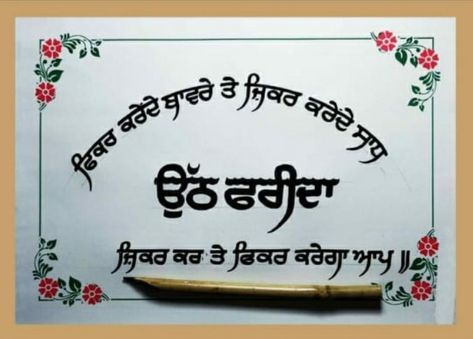 ਫਿਕਰ ਕਰੇਂਦੇ ਬਾਵਰੇ ਤੇ ਜ਼ਿਕਰ ਕਰੇਂਦੇ ਸਾਧ
ਉੱਠ ਫਰੀਦਾ
ਜ਼ਿਕਰ ਕਰ ਤੇ ਫਿਕਰ ਕਰੇਗਾ ਆਪ ॥